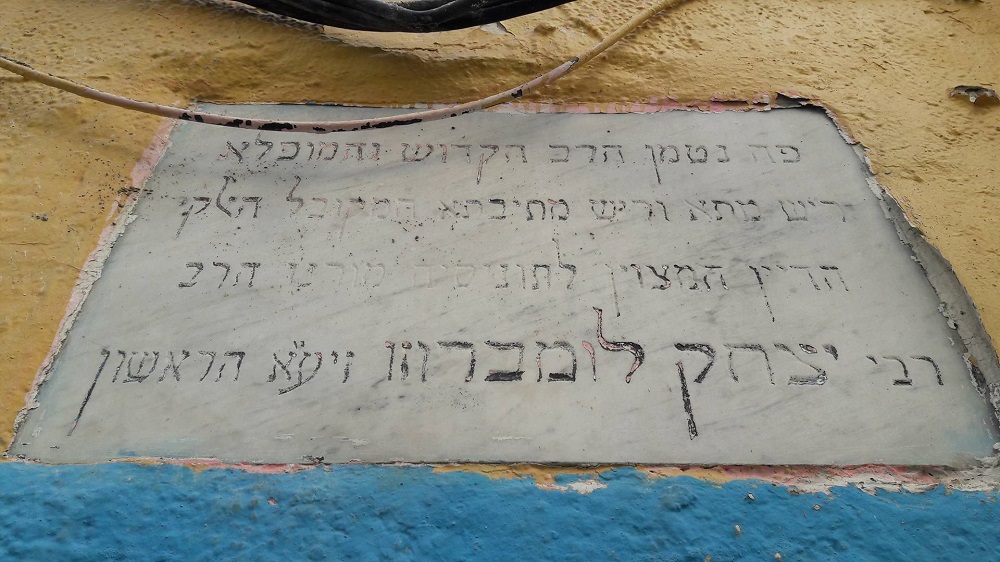 פה נטמן הרב הקדוש והמופלא
ריש מתא וריש מתיבתא המקובל הﭏקי
הדיין המצוין לתוניסים הרב
רבי יצחק לומברוזו זיע״א הראשון